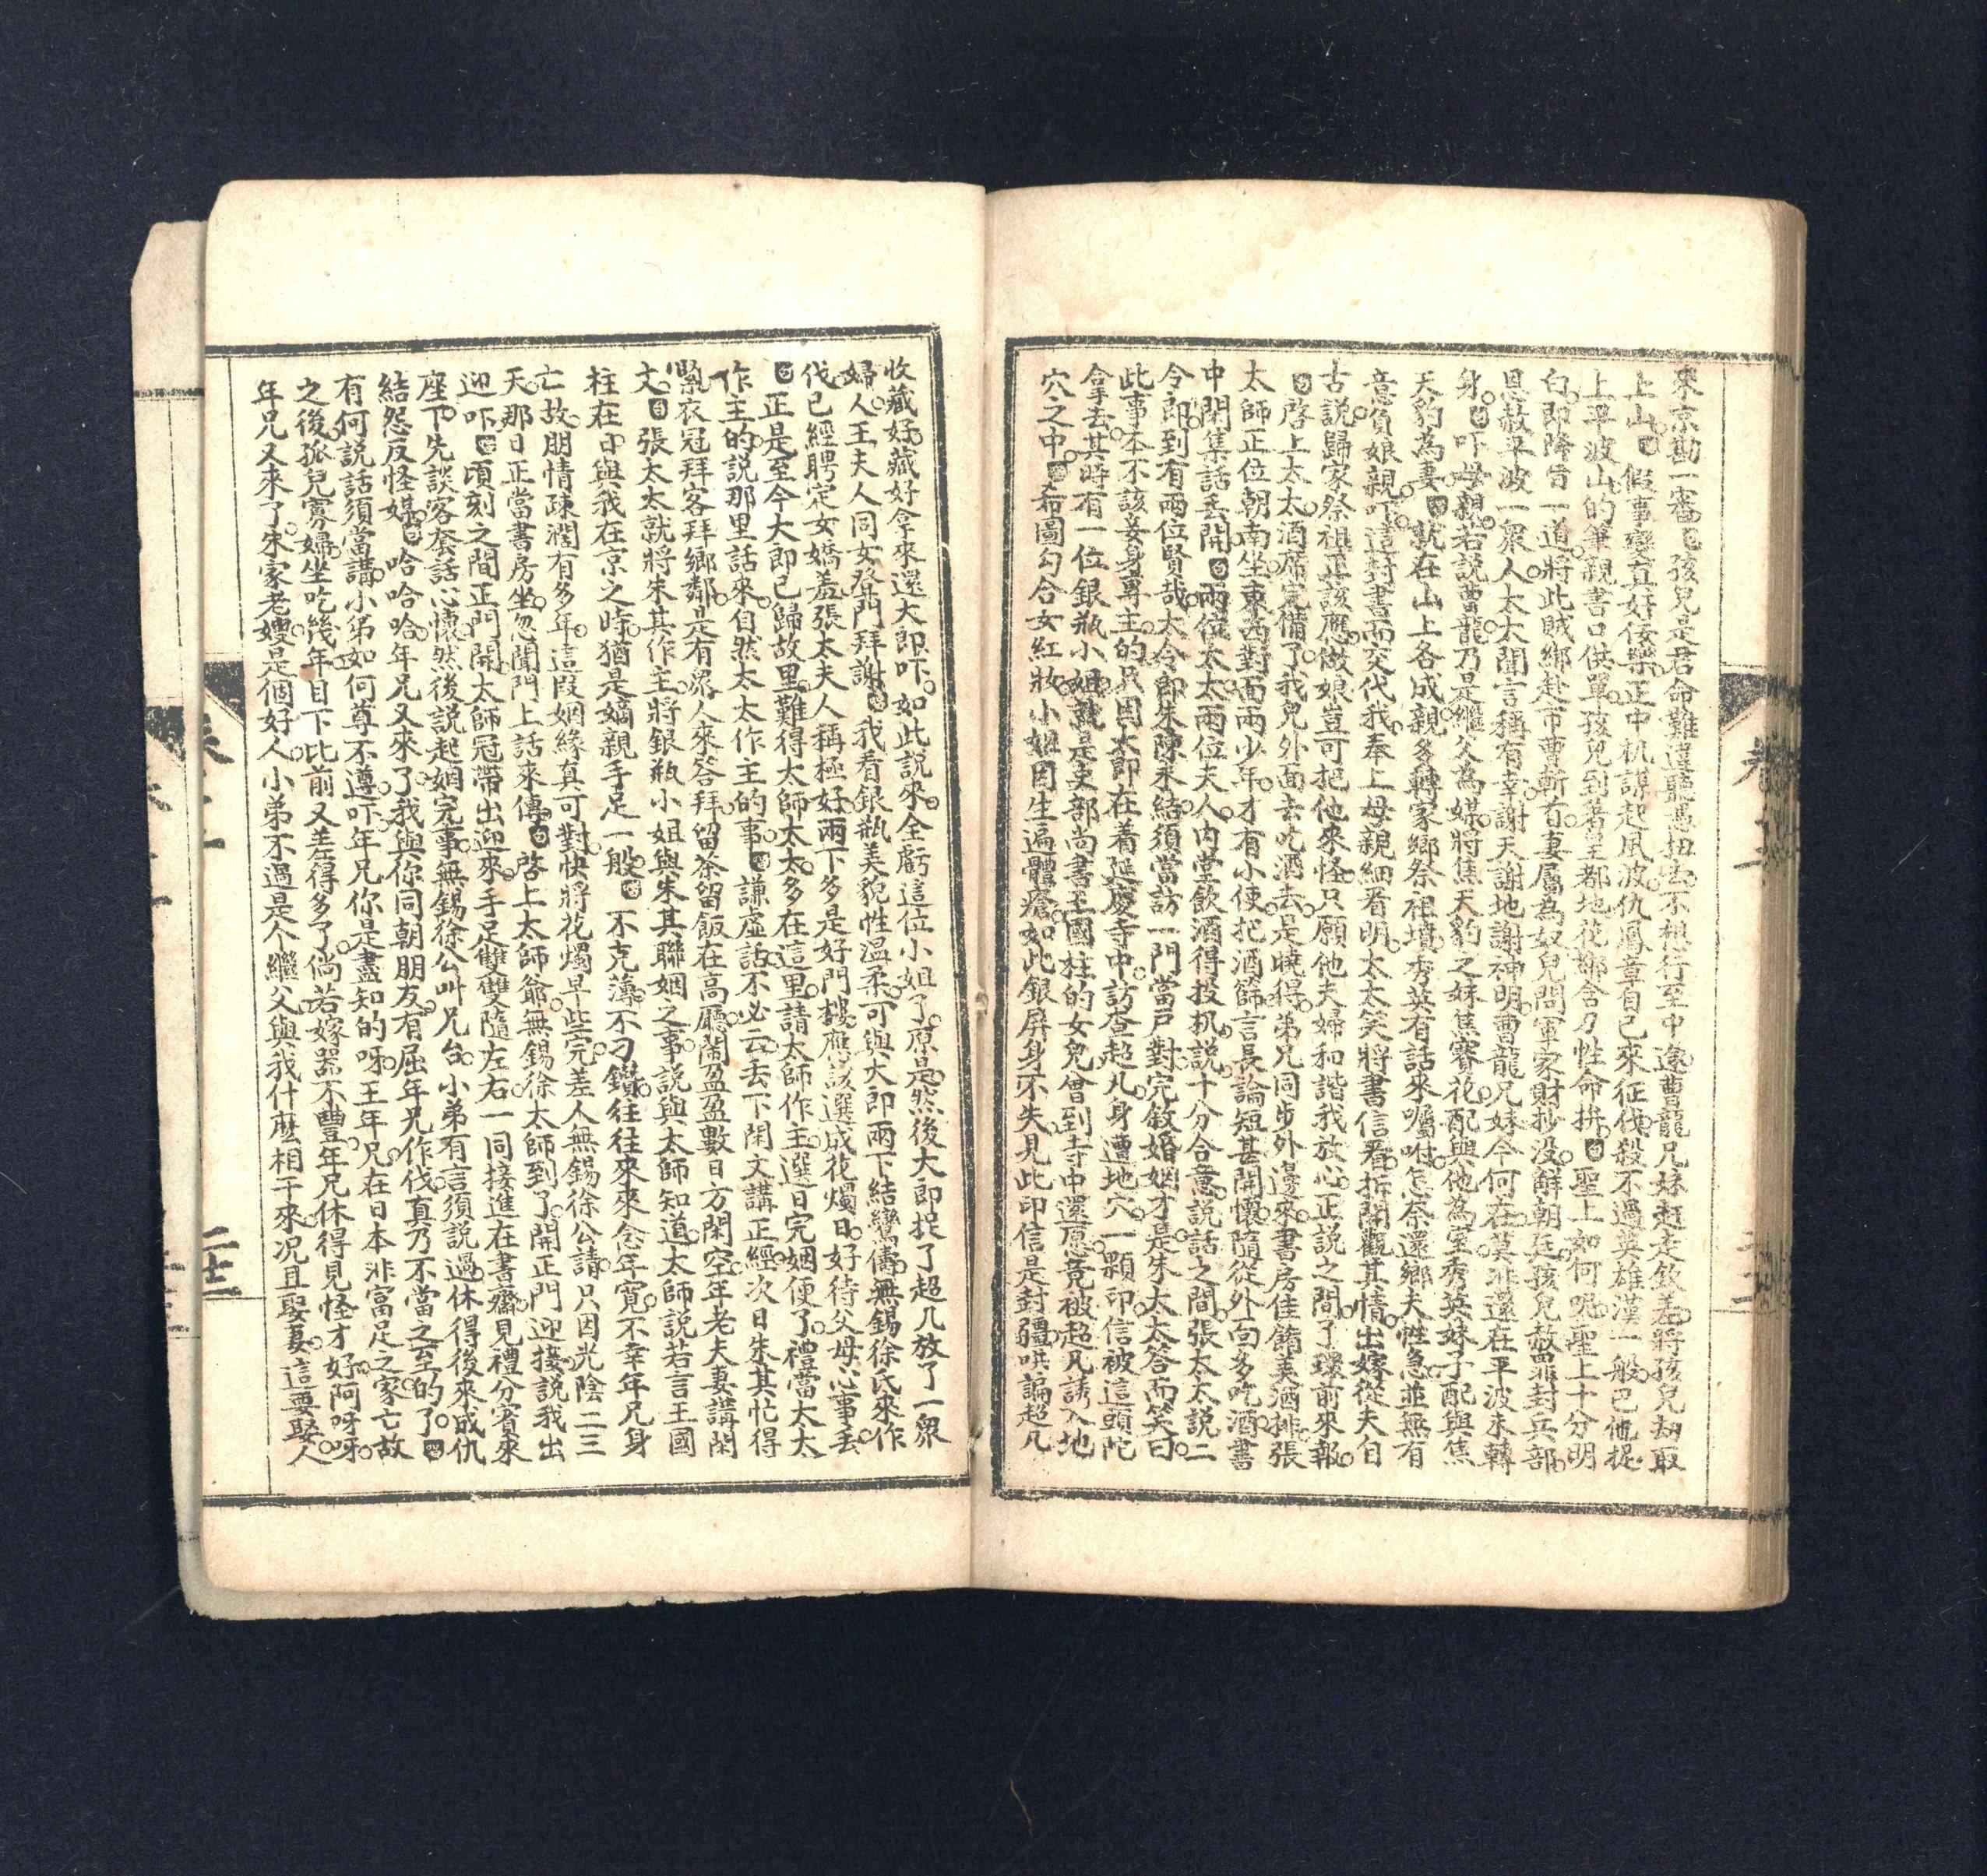 來京勘一審吓孩兒是君命難違聽憑扭去不想行至中途曹龍兄妹赶走欽差將孩兒刼取
上山白假事變真好佞樂正中机謀起風波仇鳳章自己來征伐殺不過英雄漢一般已他捉
上平波山的筆親書口供單孩兒到著王都地花鄒舍刀性命拚白聖上如何呢聖上十分明
白即降旨一道將此賊綁赴市曹斬首妻屬為奴兒問軍家財抄没解朝廷孩兒赦罪封兵部
恩赦平波一衆人太太聞言稱有幸謝天謝地謝神明曹龍兄妹今何在莫非還在平波未轉
身白吓母親若説曹龍乃是繼父為媒將焦天豹之妹焦賽花配與他為室秀英妹子配與焦
天豹為妻白就在山上各成親多轉家鄉祭祖墳秀英有話來囑咐怎奈還鄉夫性急並無有
意負娘親吓這封書而交代我奉上母親細看明太太笑將書信看拆開觀其情出嫁從夫自
古説歸家祭祖正該應做娘豈可把他來怪只願他夫婦和諧我放心正説之間了環前來報
白啓上太太酒席完備了我兒外面去吃酒去是曉得弟兄同步外邊來書房佳餚美酒排張
太師正位朝南坐東西對面兩少年才有小便把酒篩言長論短甚開懷隨從外面多吃酒書
中閉集話丢開白兩位太太兩位夫人内堂飲酒得投机説十分合意説話之間張太太説二
令郎到有兩位賢哉太令郎朱陳未結須當訪一門當戸對完敘婚姻才是朱太太答而笑曰
此事本不該妾身專主的只因大郎在着延慶寺中訪查超凡身遭地穴一顆印信被這頭陀
拿去其時有一位銀瓶小姐就是吏部尚書王國柱的女兒曾到寺中還愿竟被超凡誘入地
穴之中白希圖勾合女紅妝小姐因生遍體瘡如此銀屏身不失見此印信是封疆哄騙超凡
收藏好藏好拿來還大郎吓如此説來全虧這位小姐了原是然後大郎捉了超凡放了一衆
婦人王夫人同女登門拜謝白我看銀瓶美貌性温柔可與大郎兩下結鸞儔無錫徐氏來作
伐已經聘定女嬌羞張太夫人稱極好兩下多是好門樓應該選成花燭日好待父母心事丢
白正是至今大郎已歸故里難得太師太太多在這里請太師作主選日完姻便了禮當太太
作主的説那里話來自然太太作主的事白謙虛話不必云去下閑文講正經次日朱其忙得
緊衣冠拜客拜鄉鄰是有衆人來答拜留茶留飯在高廳鬧盈盈數日方閑空年老夫妻講閑
文白張太太就將朱其作主將銀瓶小姐與朱其聯姻之事説與太師知道太師説若言王國
柱在日與我在京之時猶是嫡親手足一般白不克薄不刁鑽往往來來念年寛不幸年兄身
亡故朋情疎濶有多年這叚姻緣真可對快將花燭早些完差人無錫徐公請只因光陰二三
天那日正當書房坐忽聞門上話來傳白啓上太師爺無錫徐太師到了開正門迎接説我出
迎吓白頃刻之間正門開太師冠帶出迎來手足雙雙隨左右一同接進在書齋見禮分賓來
座下先談客套話心懷然後説起姻完事無錫徐公叫兄台小弟有言須説過休得後來成仇
結怨反怪媒白哈哈哈年兄又來了我與你同朝朋友有屈年兄作伐真乃不當之至的了白
有何説話須當講小弟如何尊不遵吓年兄你是盡知的呀王年兄在日本非富足之家亡故
之後孤兒寡婦坐吃幾年目下比前又差得多了倘若嫁器不豐年兄休得見怪才好阿呀呀
年兄又來了朱家老嫂是個好人小弟不過是个繼父與我什麽相干來況且娶妻這要娶人
卷十三
二十三